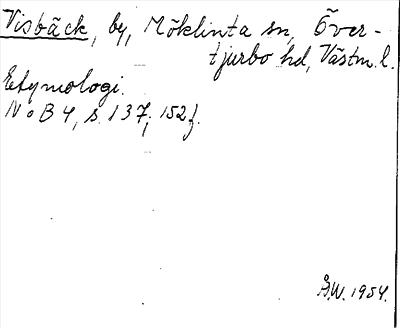 Visbäck, by, Möklinta sn, Över-
tjurbo hd, Västm. l.
Etymologi.
NoB 4, s. 137; 152f.
Å.W. 1954.